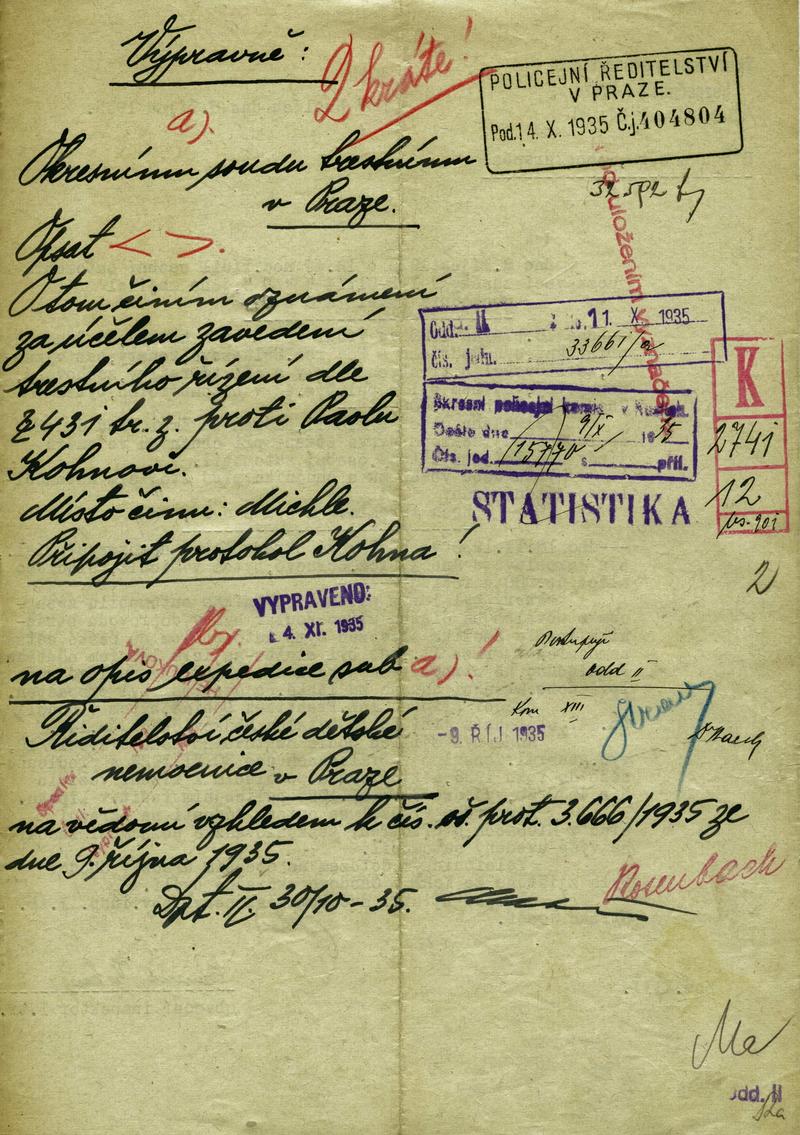 Výpravně:
2 kráte!
POLICEJNÍ ŘEDITELSTVÍ
V PRAZE.
Pod. 14. X. 1935 Č.j. 404804
a).
Okresnímu soudu trestnímu
v Praze.
Opsat < >.
O tom činím oznámení
za účelem zavedení
trestního řízení dle
§ 431 tr. z. proti Paulu
Kohnovi.
Místo činu: Michle.
Připojit protokol Kohna!
Odd. II 11. X. 1935
čís. jedn. 33661/a
Došlo dne 9/X 1935
Čís. jed. 15770 příl.
STATISTIKA
K
2741
12
2
VYPRAVENO:
4. XI. 1935
na opis expedice sub a)!
Postupuji
odd II
Kom XIII
-9. ŘÍJ. 1935
Ředitelství české dětské
nemocnice v Praze
na vědomí vzhledem k čís. oš. prot. 3.666/1935 ze
dne 9. října 1935.
Dpt. II. 30/10 - 35.
Rosenbach
Odd. II